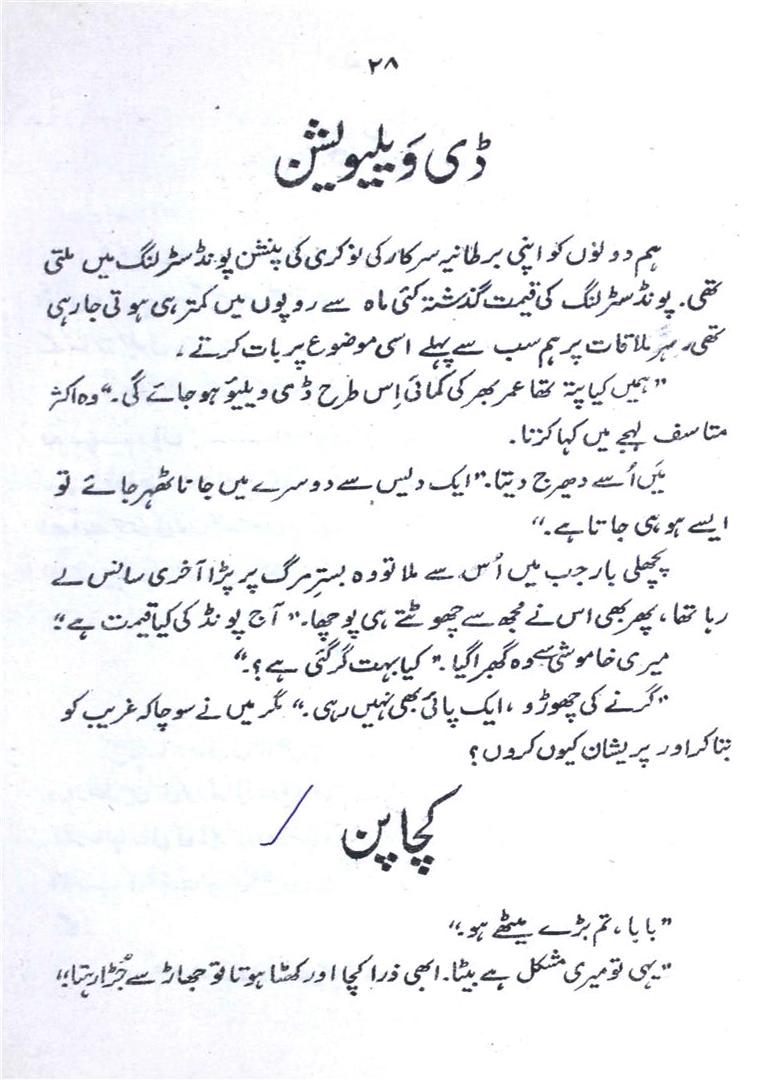 ۲۸
ڈی وَیلیویشن
ہم دونوں کو اپنی برطانیہ سرکار کی نوکری کی پنشن پونڈ سٹرلنگ میں ملتی
تھی۔ پونڈ سٹرلنگ کی قیمت گذشتہ کئی ماہ سے روپوں میں کمتر ہی ہوتی جا رہی
تھی، ہر ملاقات پر ہم سب سے پہلے اسی موضوع پر بات کرتے،
”ہمیں کیا پتہ تھا عمر بھر کی کمائی اِس طرح ڈی ویلیوُ ہو جائے گی۔“ وہ اکثر
متاسف لہجے میں کہا کرتا۔
میَں اُسے دھیرج دیتا۔ ”ایک دیس سے دوسرے میں جانا ٹھہر جائے تو
ایسے ہو ہی جاتا ہے۔“
پچھلی بار جب میں اُس سے ملا تو وہ بسترِ مرگ پر پڑا آخری سانس لے
رہا تھا، پھر بھی اس نے مجھ سے چھوٹتے ہی پوچھا۔ ”آج پونڈ کی کیا قیمت ہے“؛
میری خاموشی سے وہ گھبرا گیا۔ ”کیا بہت گر گئی ہے؟۔“
”گرنے کی چھوڑو، ایک پائی بھی نہیں رہی۔“ مگر میں نے سوچا کہ غریب کو
بتا کر اور پریشان کیوں کروں؟
کچاپن
”بابا، تم بڑے میٹھے ہو۔“
”یہی تو میری مشکل ہے بیٹا۔ ابھی ذرا کچا اور کھٹا ہوتا تو جھاڑ سے جُڑا رہتا۔“